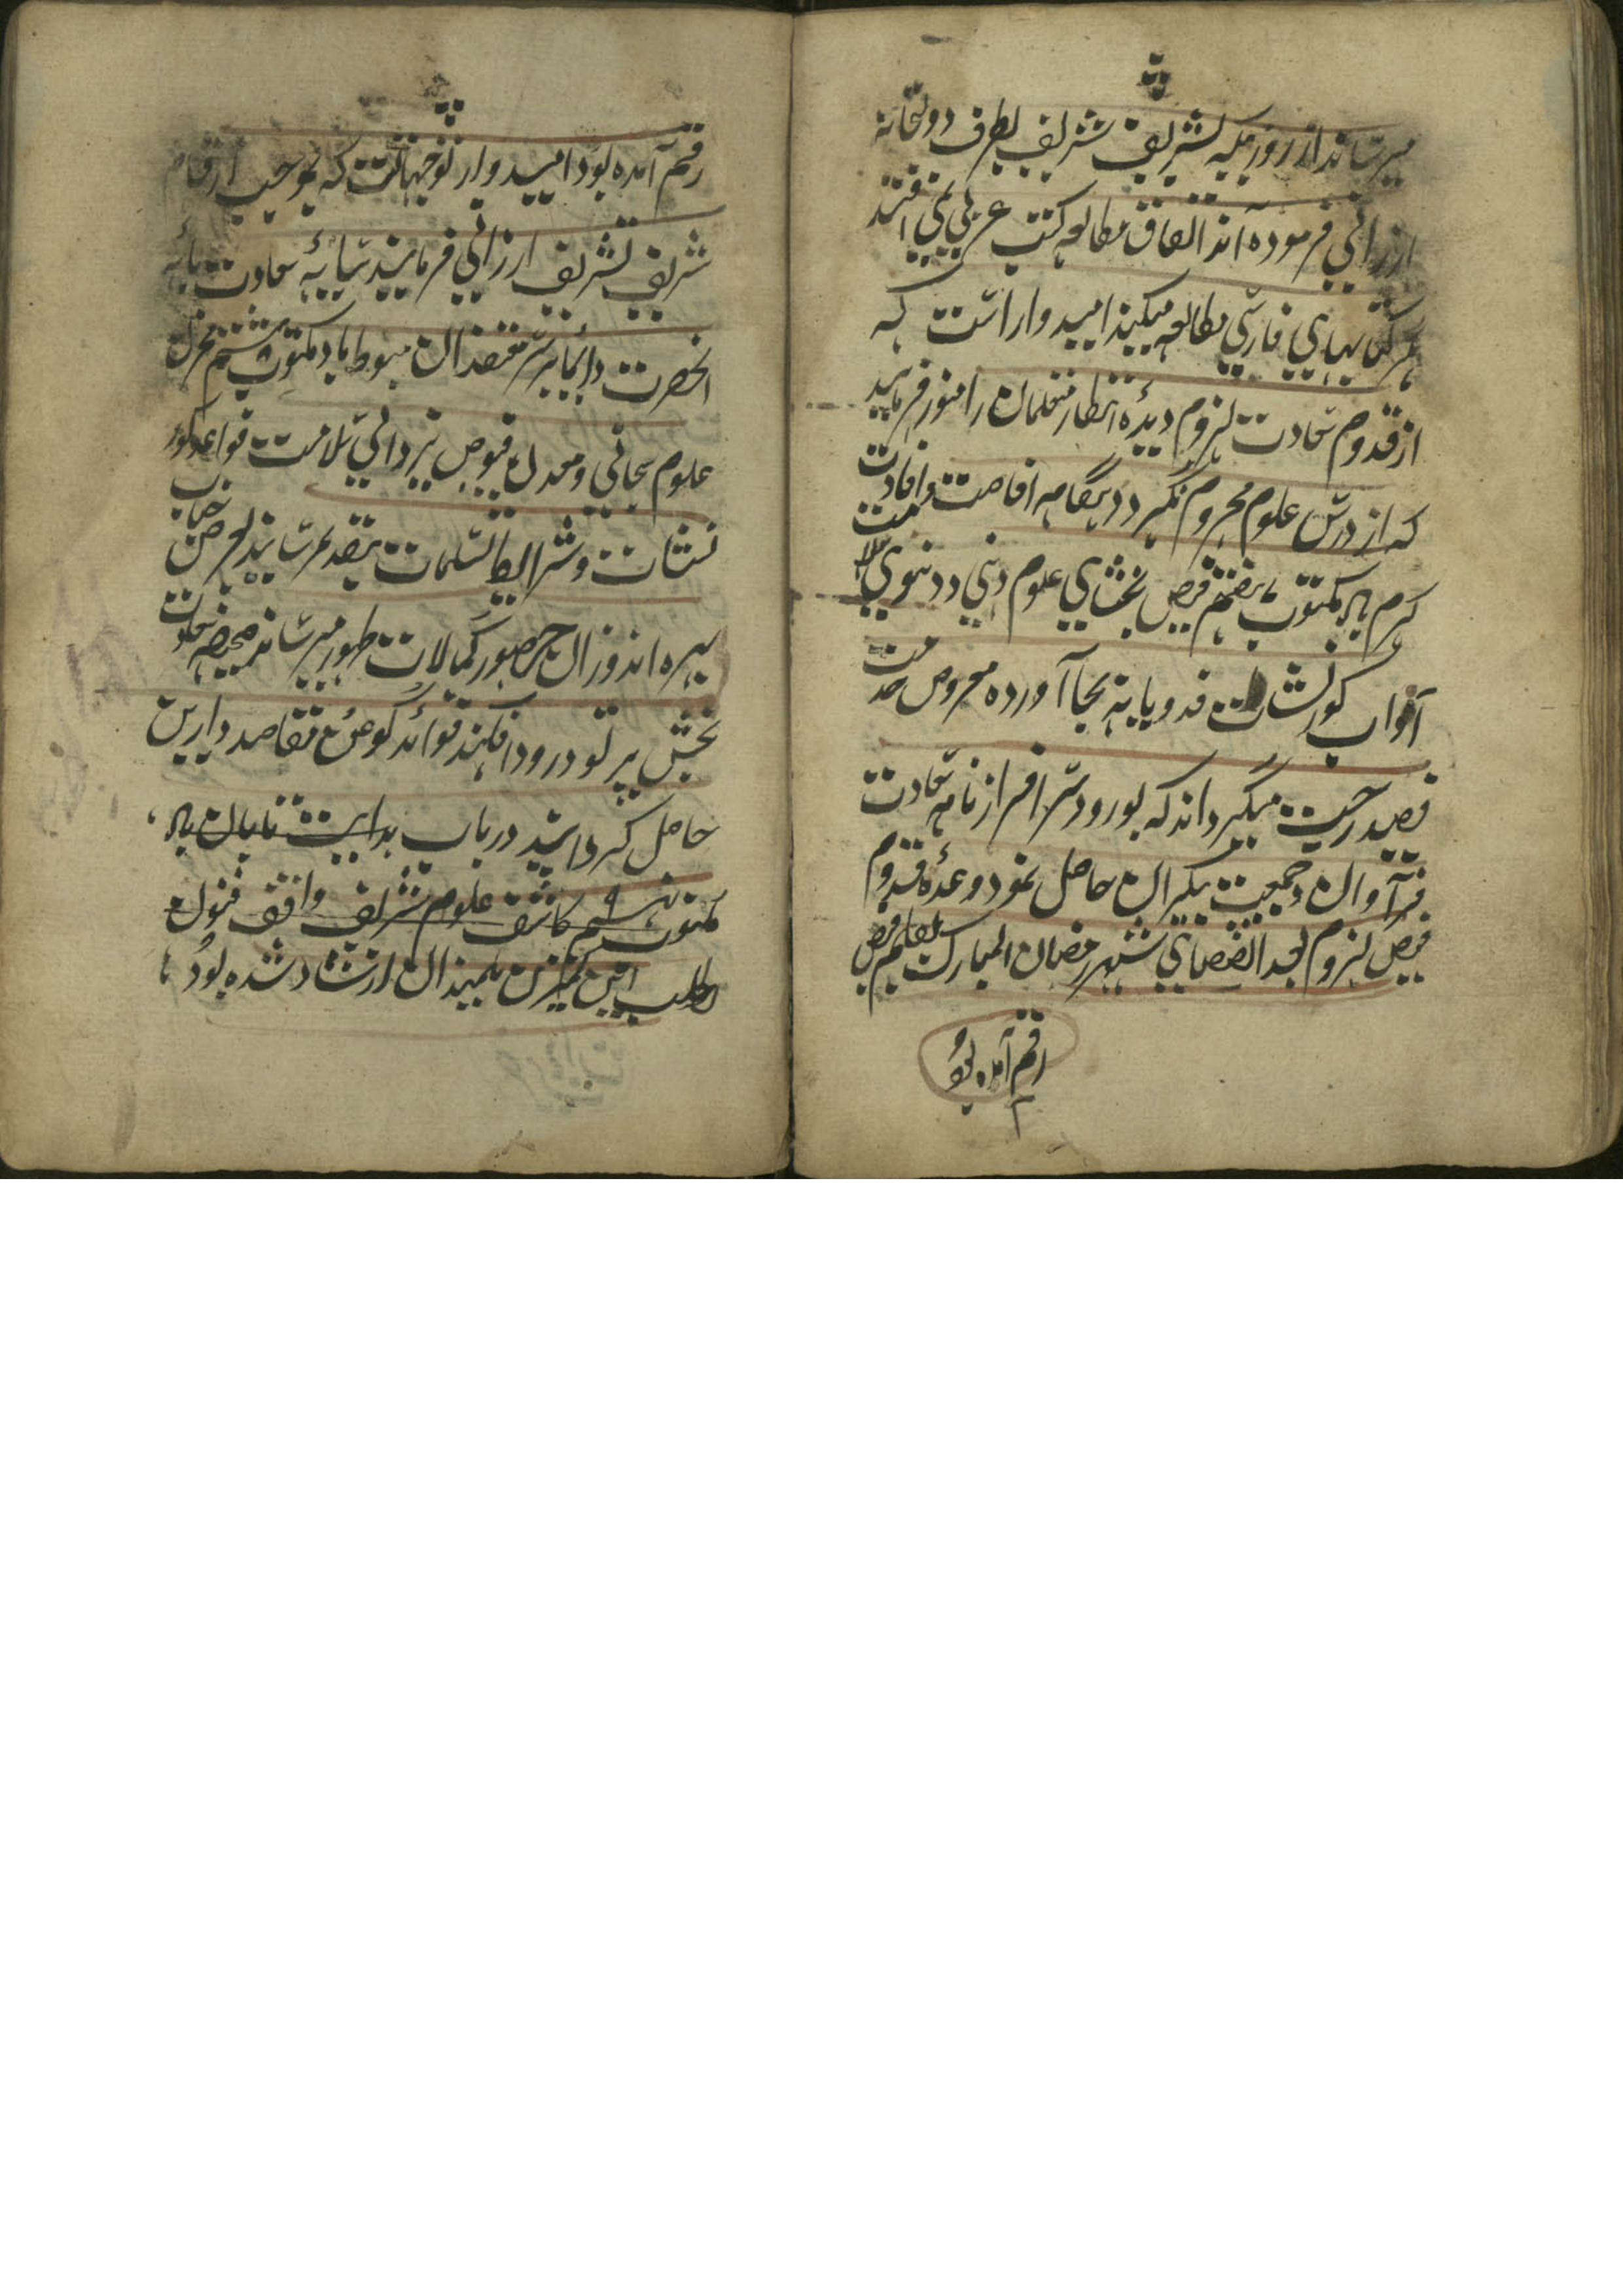 میرساند از روزیکه تشریف شریف بطرف دولتخانه
ارزانی فرموده اند اتفاق مطالعه کتب عربی نمی افتد
هر کتابهای فارسی مطالعه میکند امیدوار است که
از قدوم سعادت لزوم دیدهٔ انتظار متعلمان را منور فرمایند
که از درس علوم محروم نگردد دیگر سایه افاضت و افادت
کرم باد مکتوب هفتم فیض بخشای علوم دینی و دنیوی سلامت
آداب کورنشات فدویانه بجا آورده معروض خدمت
فیصدرجت میگرداند که بورود سرافرازنامه سعادت
فراوان و جمعیت بیکران حاصل نمود وعدهٔ قدوم
فیض لزوم بعد انقضای شهر رمضان المبارک بقلم فیض
رقم آمده بود
رقم آمده بود امیدوار توجهات است که بموجب ارقام
شریف تشریف ارزانی فرمایند سایهٔ سعادت پایه
آنحضرت دایما بر سر معتقدان مبسوط باد مکتوب هشتم مخزن
علوم سبحانی و معدن فیوض یزدانی سلامت قواعد کور
نشات و شرایط تسلیمات بتقدیم رسانیده بعرض جناب
بهره اندوزان حضور کمالات ظهور میرساند صحیفه سعادت
بخش پرتو ورود افکند فوائد گوناگون مقاصد دارین
حاصل گردانید در باب هدایت نایان باد
مکتوب نهم کاشف علوم شریف واقف فنون
بطلب این کمترین تلمیذان ارشاد شده بود